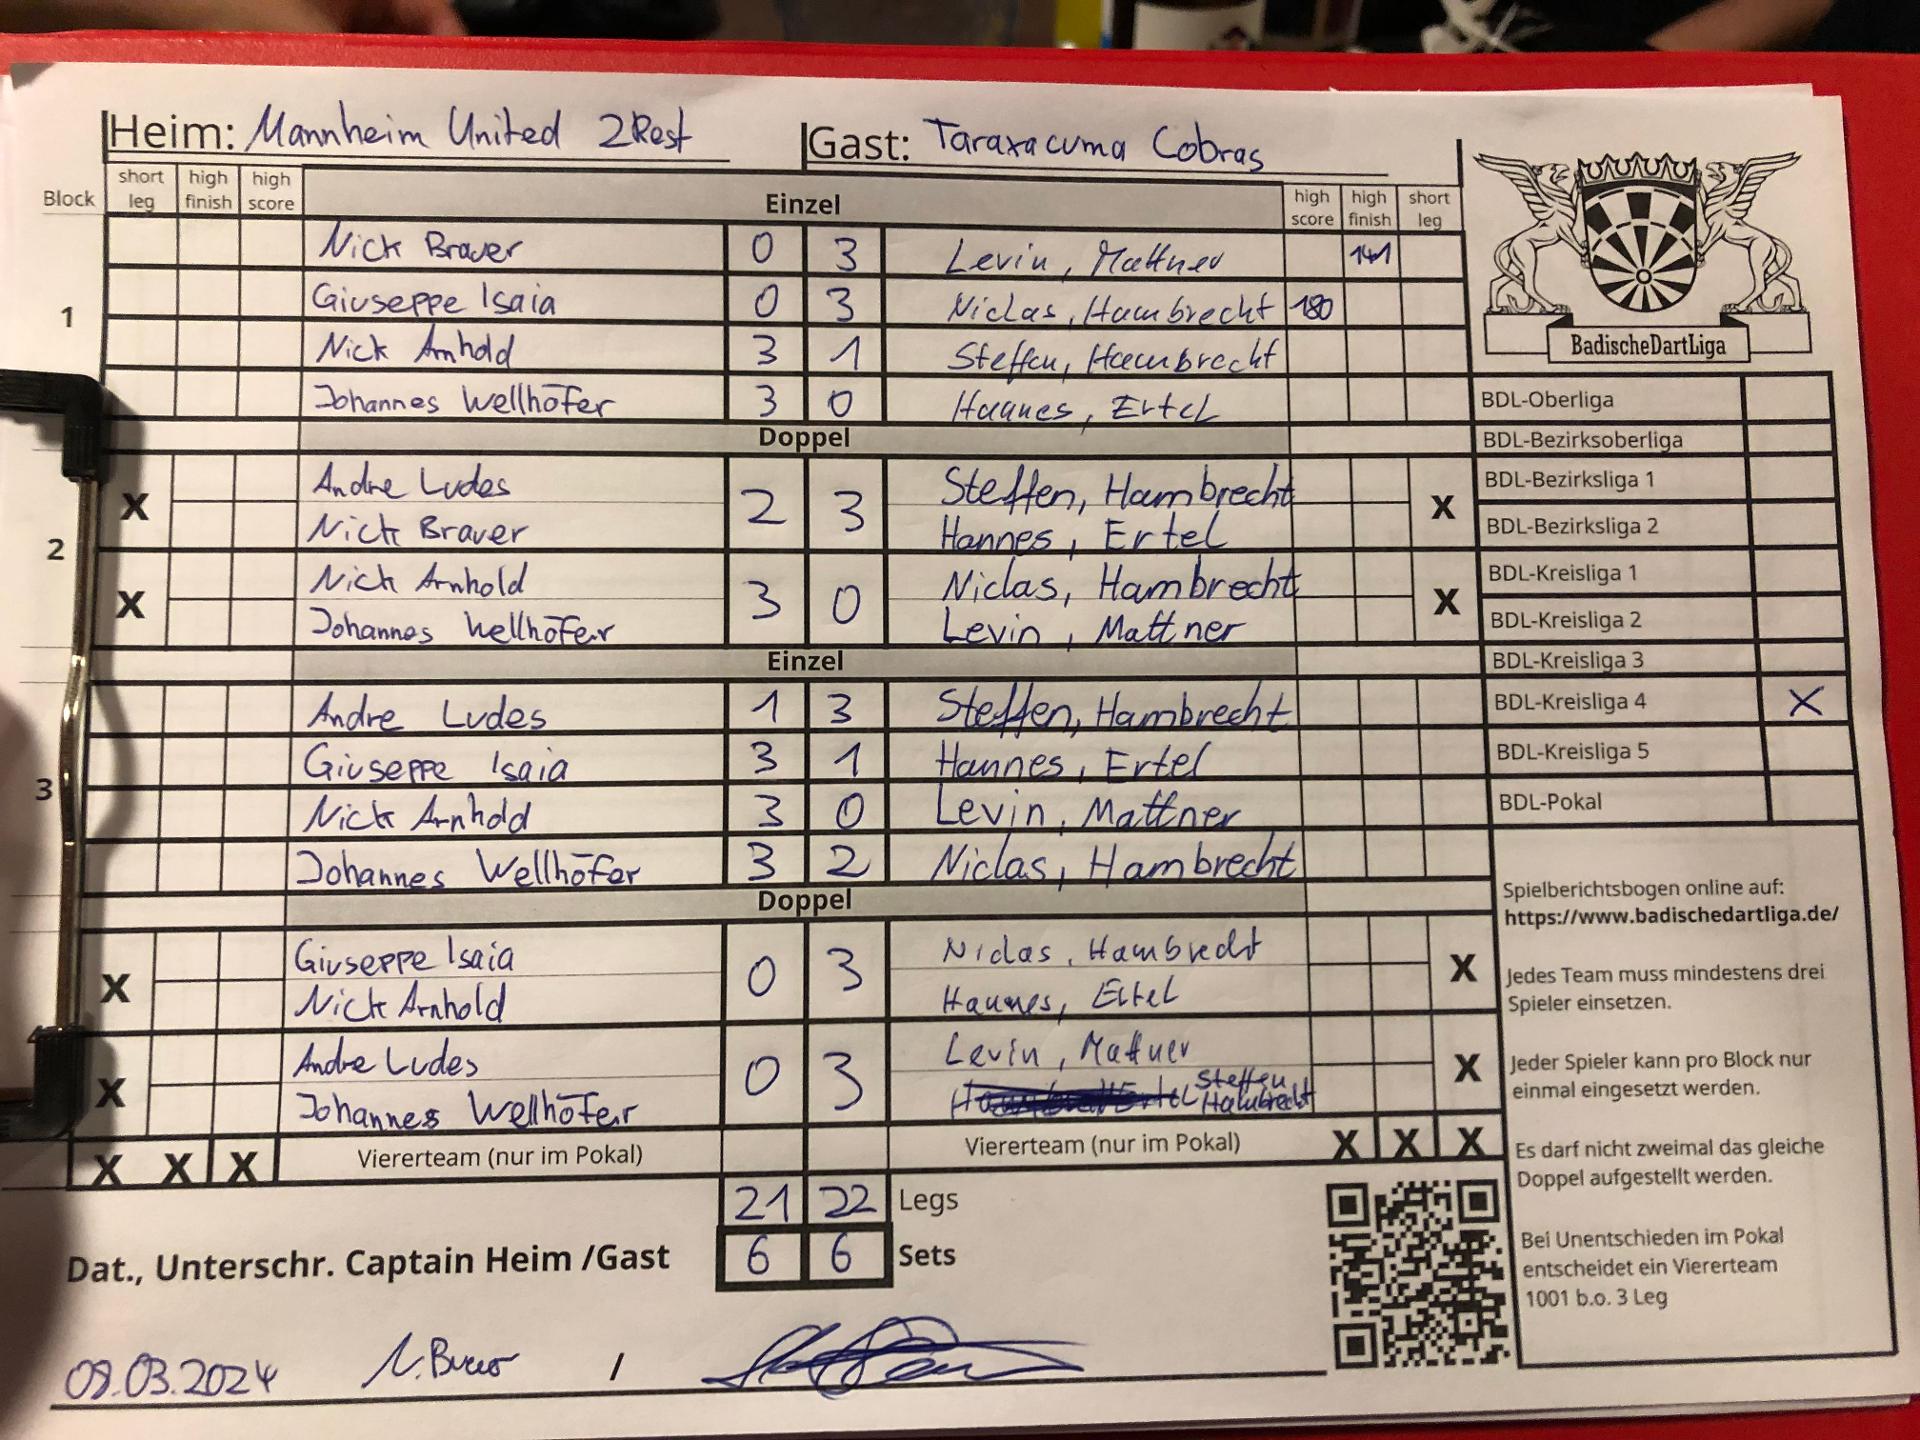 Heim: Mannheim United 2Rest Gast: Taraxacuma Cobras
Block short leg high finish high score Einzel high score high finish short leg
Nick Brauer 0 3 Levin, Mattner 141
1
Giuseppe Isaia 0 3 Niclas, Hambrecht 180
Nick Arnhold 3 1 Steffen, Hambrecht
Johannes Wellhöfer 3 0 Hannes, Ertel
Doppel
2
X Andre Ludes 2 3 Steffen, Hambrecht X
Nick Brauer Hannes, Ertel
X Nick Arnhold 3 0 Niclas, Hambrecht X
Johannes Wellhöfer Levin, Mattner
Einzel
3
Andre Ludes 1 3 Steffen, Hambrecht
Giuseppe Isaia 3 1 Hannes, Ertel
Nick Arnhold 3 0 Levin, Mattner
Johannes Wellhöfer 3 2 Niclas, Hambrecht
Doppel
X Giuseppe Isaia 0 3 Niclas, Hambrecht X
Nick Arnhold Hannes, Ertel
X Andre Ludes 0 3 Levin, Mattner X
Johannes Wellhöfer Steffen Hambrecht
X X X Viererteam (nur im Pokal) Viererteam (nur im Pokal) X X X
21 22 Legs
Dat., Unterschr. Captain Heim /Gast 6 6 Sets
09.03.2024 N. Brauer /
BadischeDartLiga
BDL-Oberliga
BDL-Bezirksoberliga
BDL-Bezirksliga 1
BDL-Bezirksliga 2
BDL-Kreisliga 1
BDL-Kreisliga 2
BDL-Kreisliga 3
BDL-Kreisliga 4 X
BDL-Kreisliga 5
BDL-Pokal
Spielberichtsbogen online auf:
https://www.badischedartliga.de/
Jedes Team muss mindestens drei
Spieler einsetzen.
Jeder Spieler kann pro Block nur
einmal eingesetzt werden.
Es darf nicht zweimal das gleiche
Doppel aufgestellt werden.
Bei Unentschieden im Pokal
entscheidet ein Viererteam
1001 b.o. 3 Leg